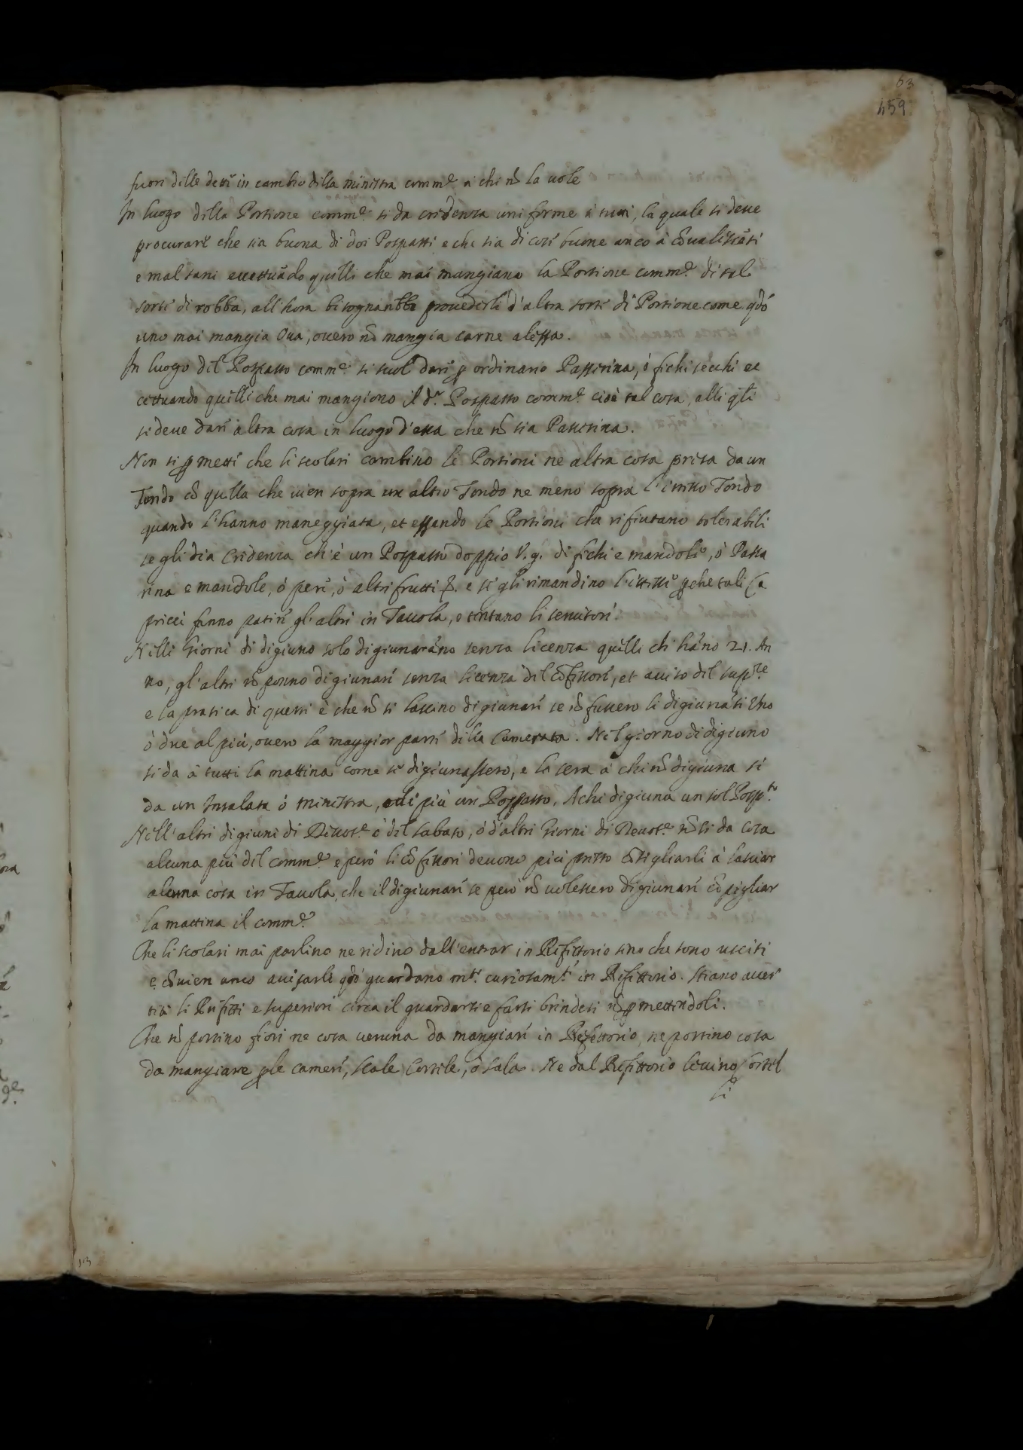 53
459.
fuori delle devi in cambio della minestra comm.e a chi nõ la vole
In luogo della Portione comm.e si da credenza uniforme à tutti, la quale si deve
procurare che sia buona di doi Pospasti e che sia di cose buone anco à Cõvalescẽti
e mal sani eccettuãdo quelli che mai mangiano la Portione comm.e di tal
sorte di robba, all'hora bisognarebbe provederli d'altra sorte di Portione come qdõ
uno mai mangia Ova, overo nõ mangia carne alessa.
In luogo del Pospasto comm.e si suol dare p ordinario Passerina, ò fichi secchi ec
cettuando quelli che mai mangiono il d.o Pospasto comm.e cioè tal cosa, alli qli
si deve dare altra cosa in luogo d'essa che nõ sia Passerina.
Non si pmette che li scolari cambino le Portioni ne altra cosa presa da un
Tondo cõ quella che vien sopra un altro Tondo ne meno sopra l'istesso Tondo
quando l'hanno maneggiata, et essendo le Portioni che rifiutano tolerabili
se gli dia Credenza ch'è un Pospasto doppio V.g. di fichi e mandole, ò Passa
rina e mandole, ò pere, ò altri frutti &. e si gli rimandino l'istesse pche tali Ca
pricci fanno patire gl'altri in Tavola, e tentano li servitori.
Nelli Giorni di digiuno solo digiunarãno senza licenza quelli ch'hãno 21. An
no, gl'altri nõ ponno digiunare senza licenza del Cõfessore, et aviso del Sup.re
e la pratica di questi è che nõ si lascino digiunare se nõ fussero li digiunãti Uno
ò due al più, overo la maggior parte della Camerata. Nel giorno di digiuno
si da à tutti la mattina come se digiunassero, e la sera à chi nõ digiuna si
da un Insalata ò minestra, e di più un Pospasto. A chi digiuna un sol Posp.to
Nell'altri digiuni di Divot.e ò del sabato, ò d'altri Giorni di Devot.e nõ si da cosa
alcuna più del comm.e e però li Cõfessori devono più presto Cõsigliarli à lasciar
alcuna cosa in Tavola, che il digiunare se però nõ volessero digiunare cõ pigliar
la mattina il comm.e
Che li scolari mai parlino ne ridino dall'entrar in Refettorio sino che sono usciti
e Cõvien anco avisarli qdõ guardano mt.o curiosam.te in Refettorio. Stiano aver
titi li Prefetti e Superiori circa il guardarsi e farsi brindesi nõ pmettendoli.
Che nõ portino fiori ne cosa veruna da mangiare in Refettorio, ne portino cosa
da mangiare p le camere, Scale, Cortile, ò Sala. Ne dal Refettorio levino Coltel
li
113